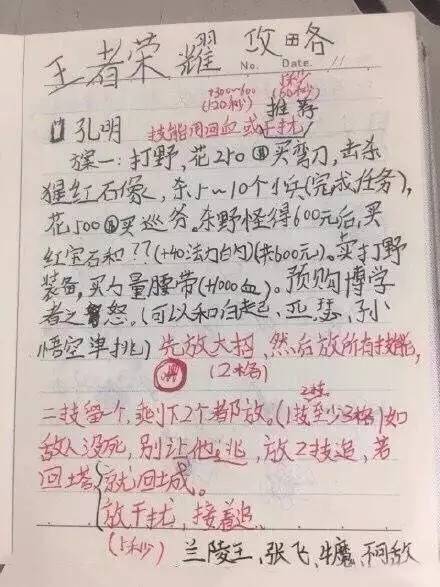 王者荣耀 攻略
No. Date. 11
+300~600 1秒
(120秒) (60秒)
推荐
孔明 技能用回血或干扰
方案一：打野，花250买弯刀，击杀
猩红石像，杀5~10个小兵(完成任务)，
花500买巡守。杀野怪得600元后，买
红宝石和??(+40法力占内)(共600元)。卖打野
装备，买力量腰带(+1000血)。预购博学
者之怒。(可以和白起、亚瑟、孙
悟空单挑)先放大招，然后放所有技能，
(2格)
二技留一个，剩下2个都放。(1技至少3格)如
敌人没死，别让他逃，放2技追，若
回塔就回城。
放干扰，接着追
(5秒) 兰陵王、张飞、牛魔、不可敌